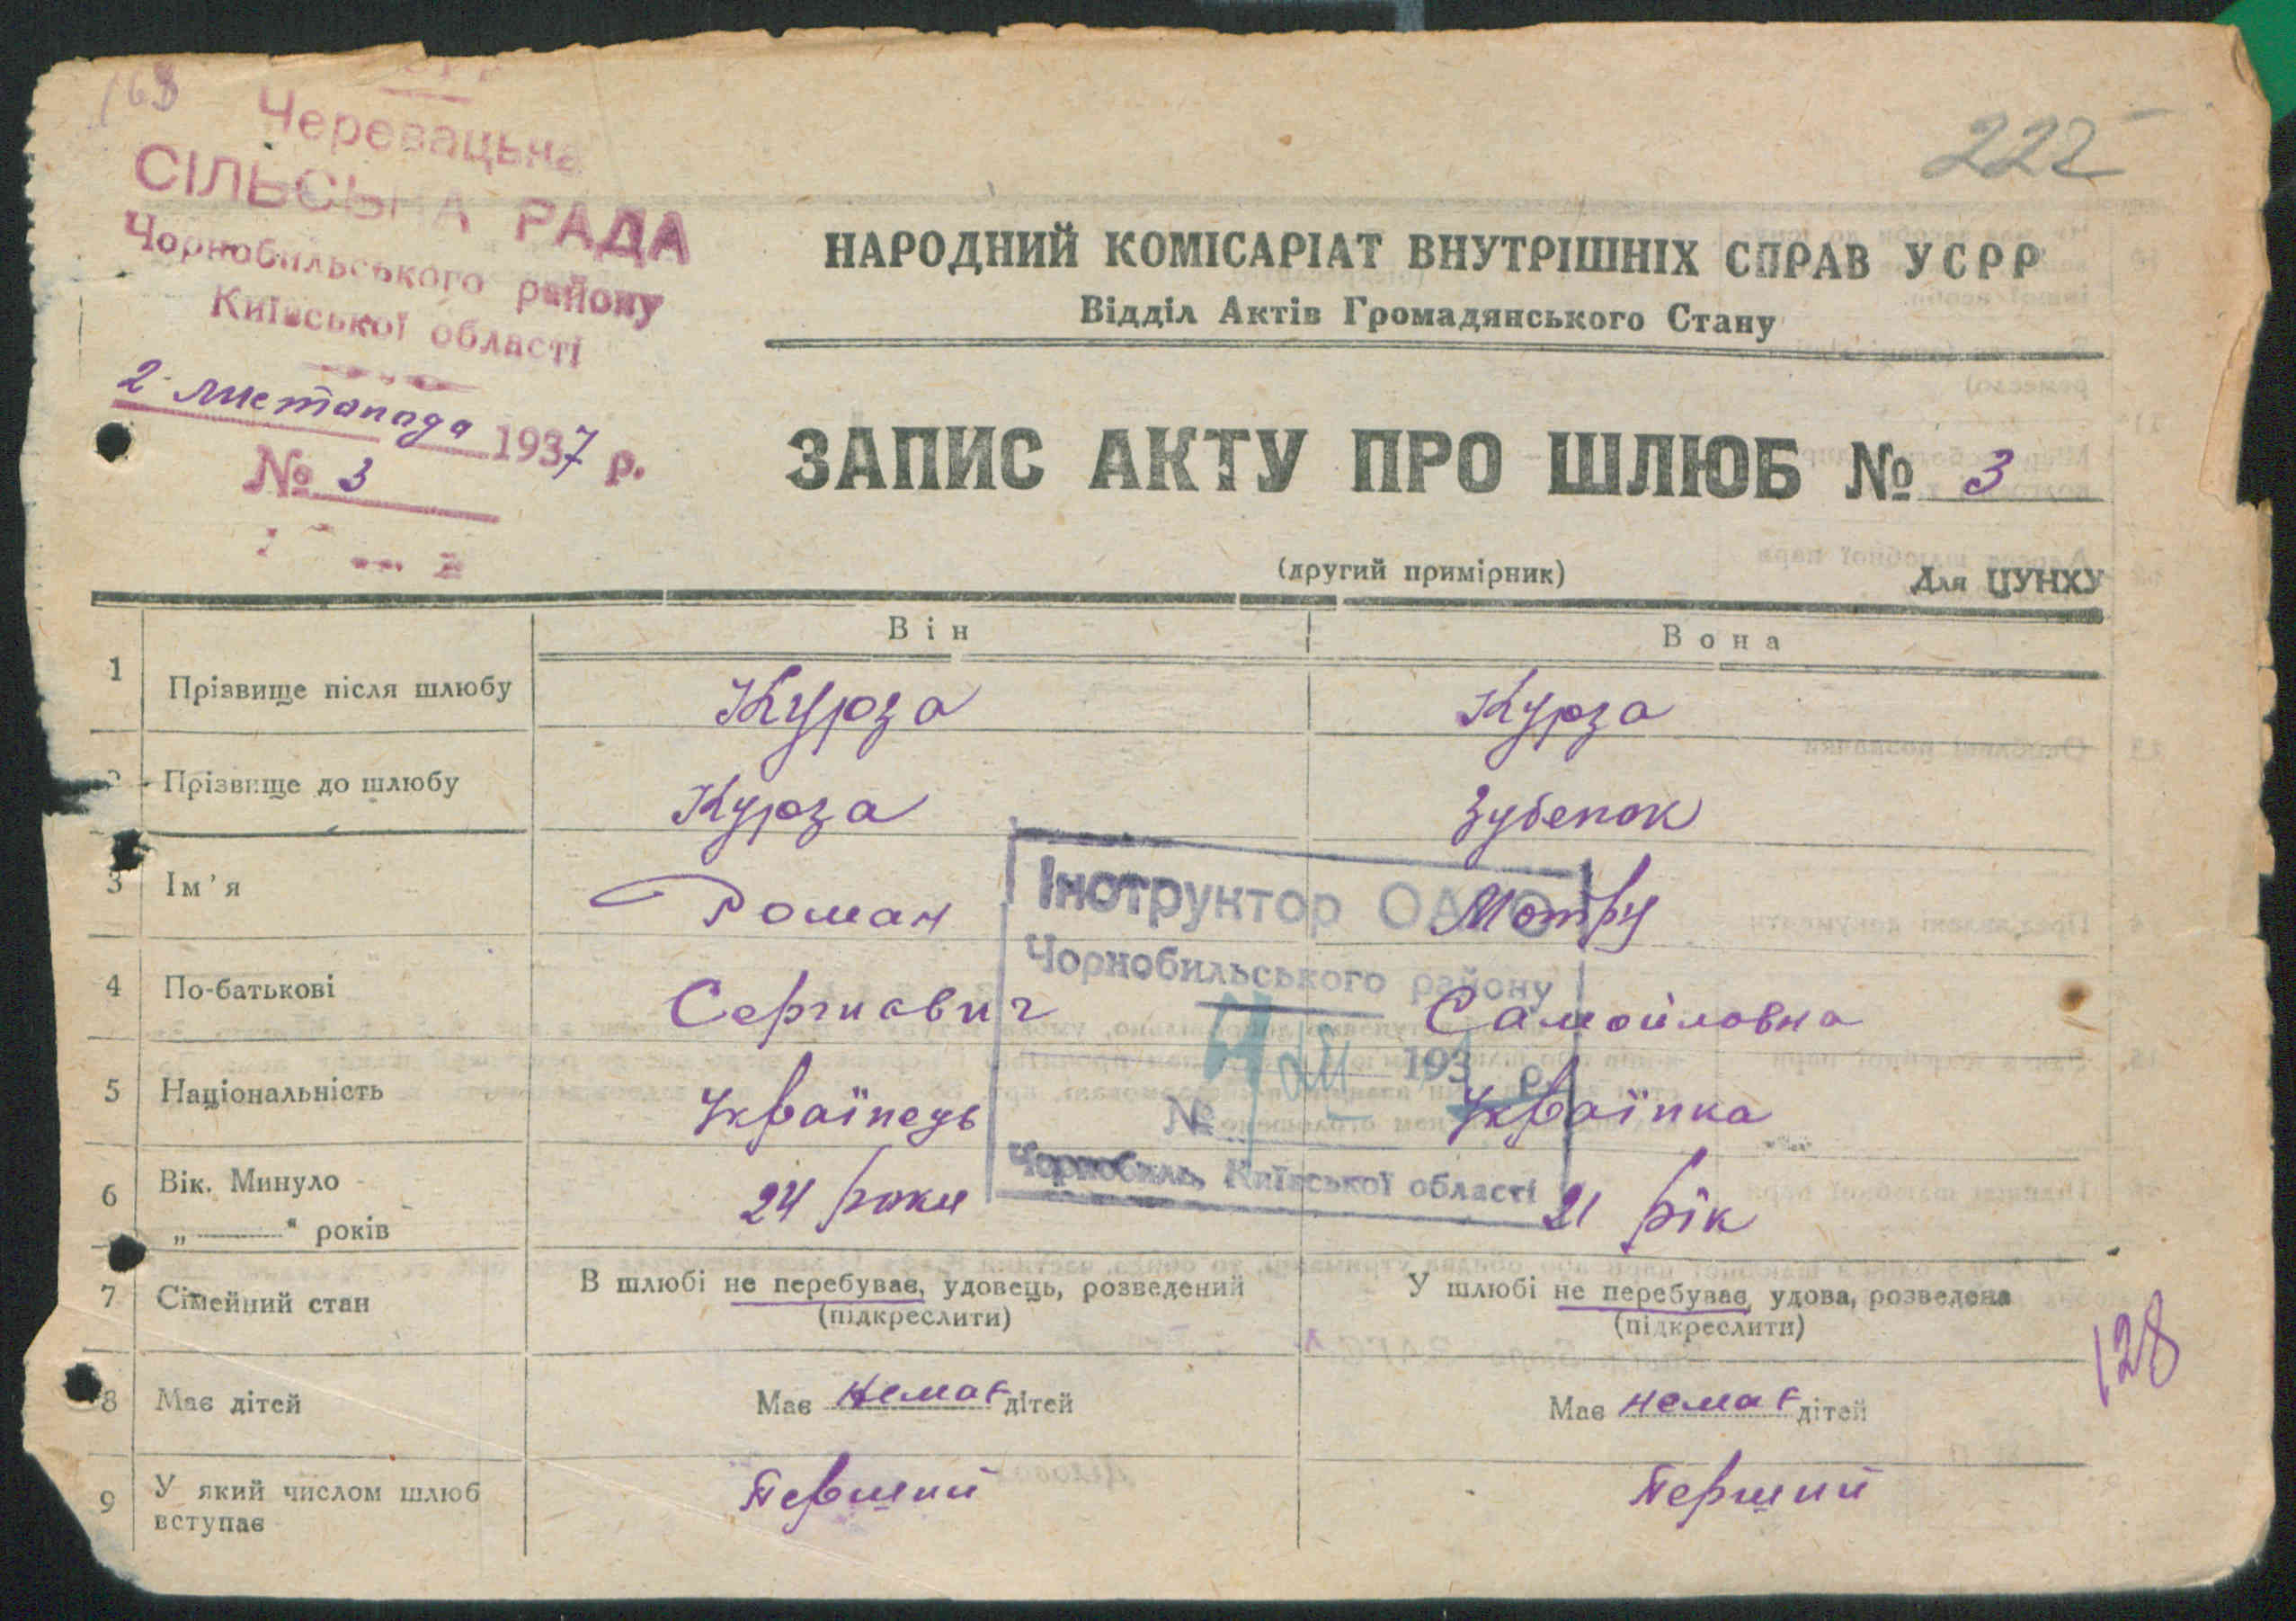 163
222
Черевацьна
СІЛЬСЬНА РАДА
Чорнобильського району
Київської області
2 листопада 1937 р.
№ 3
НАРОДНИЙ КОМІСАРІАТ ВНУТРІШНІХ СПРАВ УСРР
Відділ Актів Громадянського Стану
ЗАПИС АКТУ ПРО ШЛЮБ № 3
(другий примірник)
Для ЦУНХУ
Він
Вона
1 Прізвище після шлюбу Курза Курза
Прізвище до шлюбу Курза Зубенок
3 Ім'я Роман Мотру
4 По-батькові Сергиович Самойловна
5 Національність Україпець Україпка
6 Вік. Минуло 24 роки 21 рік
„ " років
7 Сімейний стан В шлюбі не перебуває, удовець, розведений У шлюбі не перебуває, удова, розведена
(підкреслити) (підкреслити)
8 Має дітей Має немає дітей Має немає дітей
9 У який числом шлюб Первший Перший
вступає
Інструктор ОАГС
Чорнобильського району
193 р.
№
Чорнобиль, Київської області
128